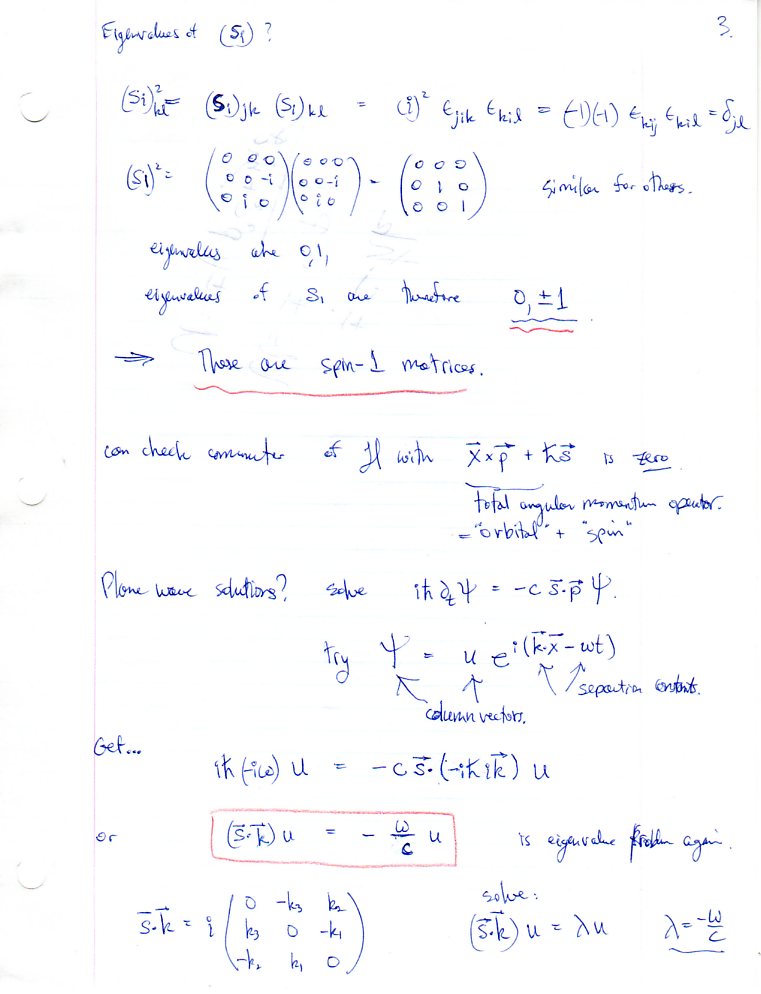 Eigenvalues of (S₁) ? 3.
(Si)²kl = (S₁)jk (S₁)kl = (i)² ϵjik ϵkil = (-1)(-1) ϵkij ϵkil = δjl
(S₁)² = (0 0 0 / 0 0 -i / 0 i 0)(0 0 0 / 0 0 -i / 0 i 0) = (0 0 0 / 0 1 0 / 0 0 1) Similar for others.
eigenvalues are 0,1,
eigenvalues of S₁ are therefore 0, ±1
⇒ These are spin-1 matrices.
can check commuter of H with x⃗×p⃗ + ℏs⃗ is zero.
total angular momentum operator.
= "orbital" + "spin"
Plane wave solutions? solve iℏ∂ₜΨ = -c s⃗·p⃗ Ψ.
try Ψ = u e^i(k⃗·x⃗ - ωt)
separation constants.
column vectors.
Get...
iℏ(-iω) u = -c s⃗·(-iℏ i k⃗) u
or (s⃗·k⃗) u = - ω/c u is eigenvalue problem again.
solve:
s⃗·k⃗ = i (0 -k₃ k₂ / k₃ 0 -k₁ / -k₂ k₁ 0) (s⃗·k⃗) u = λu λ = -ω/c